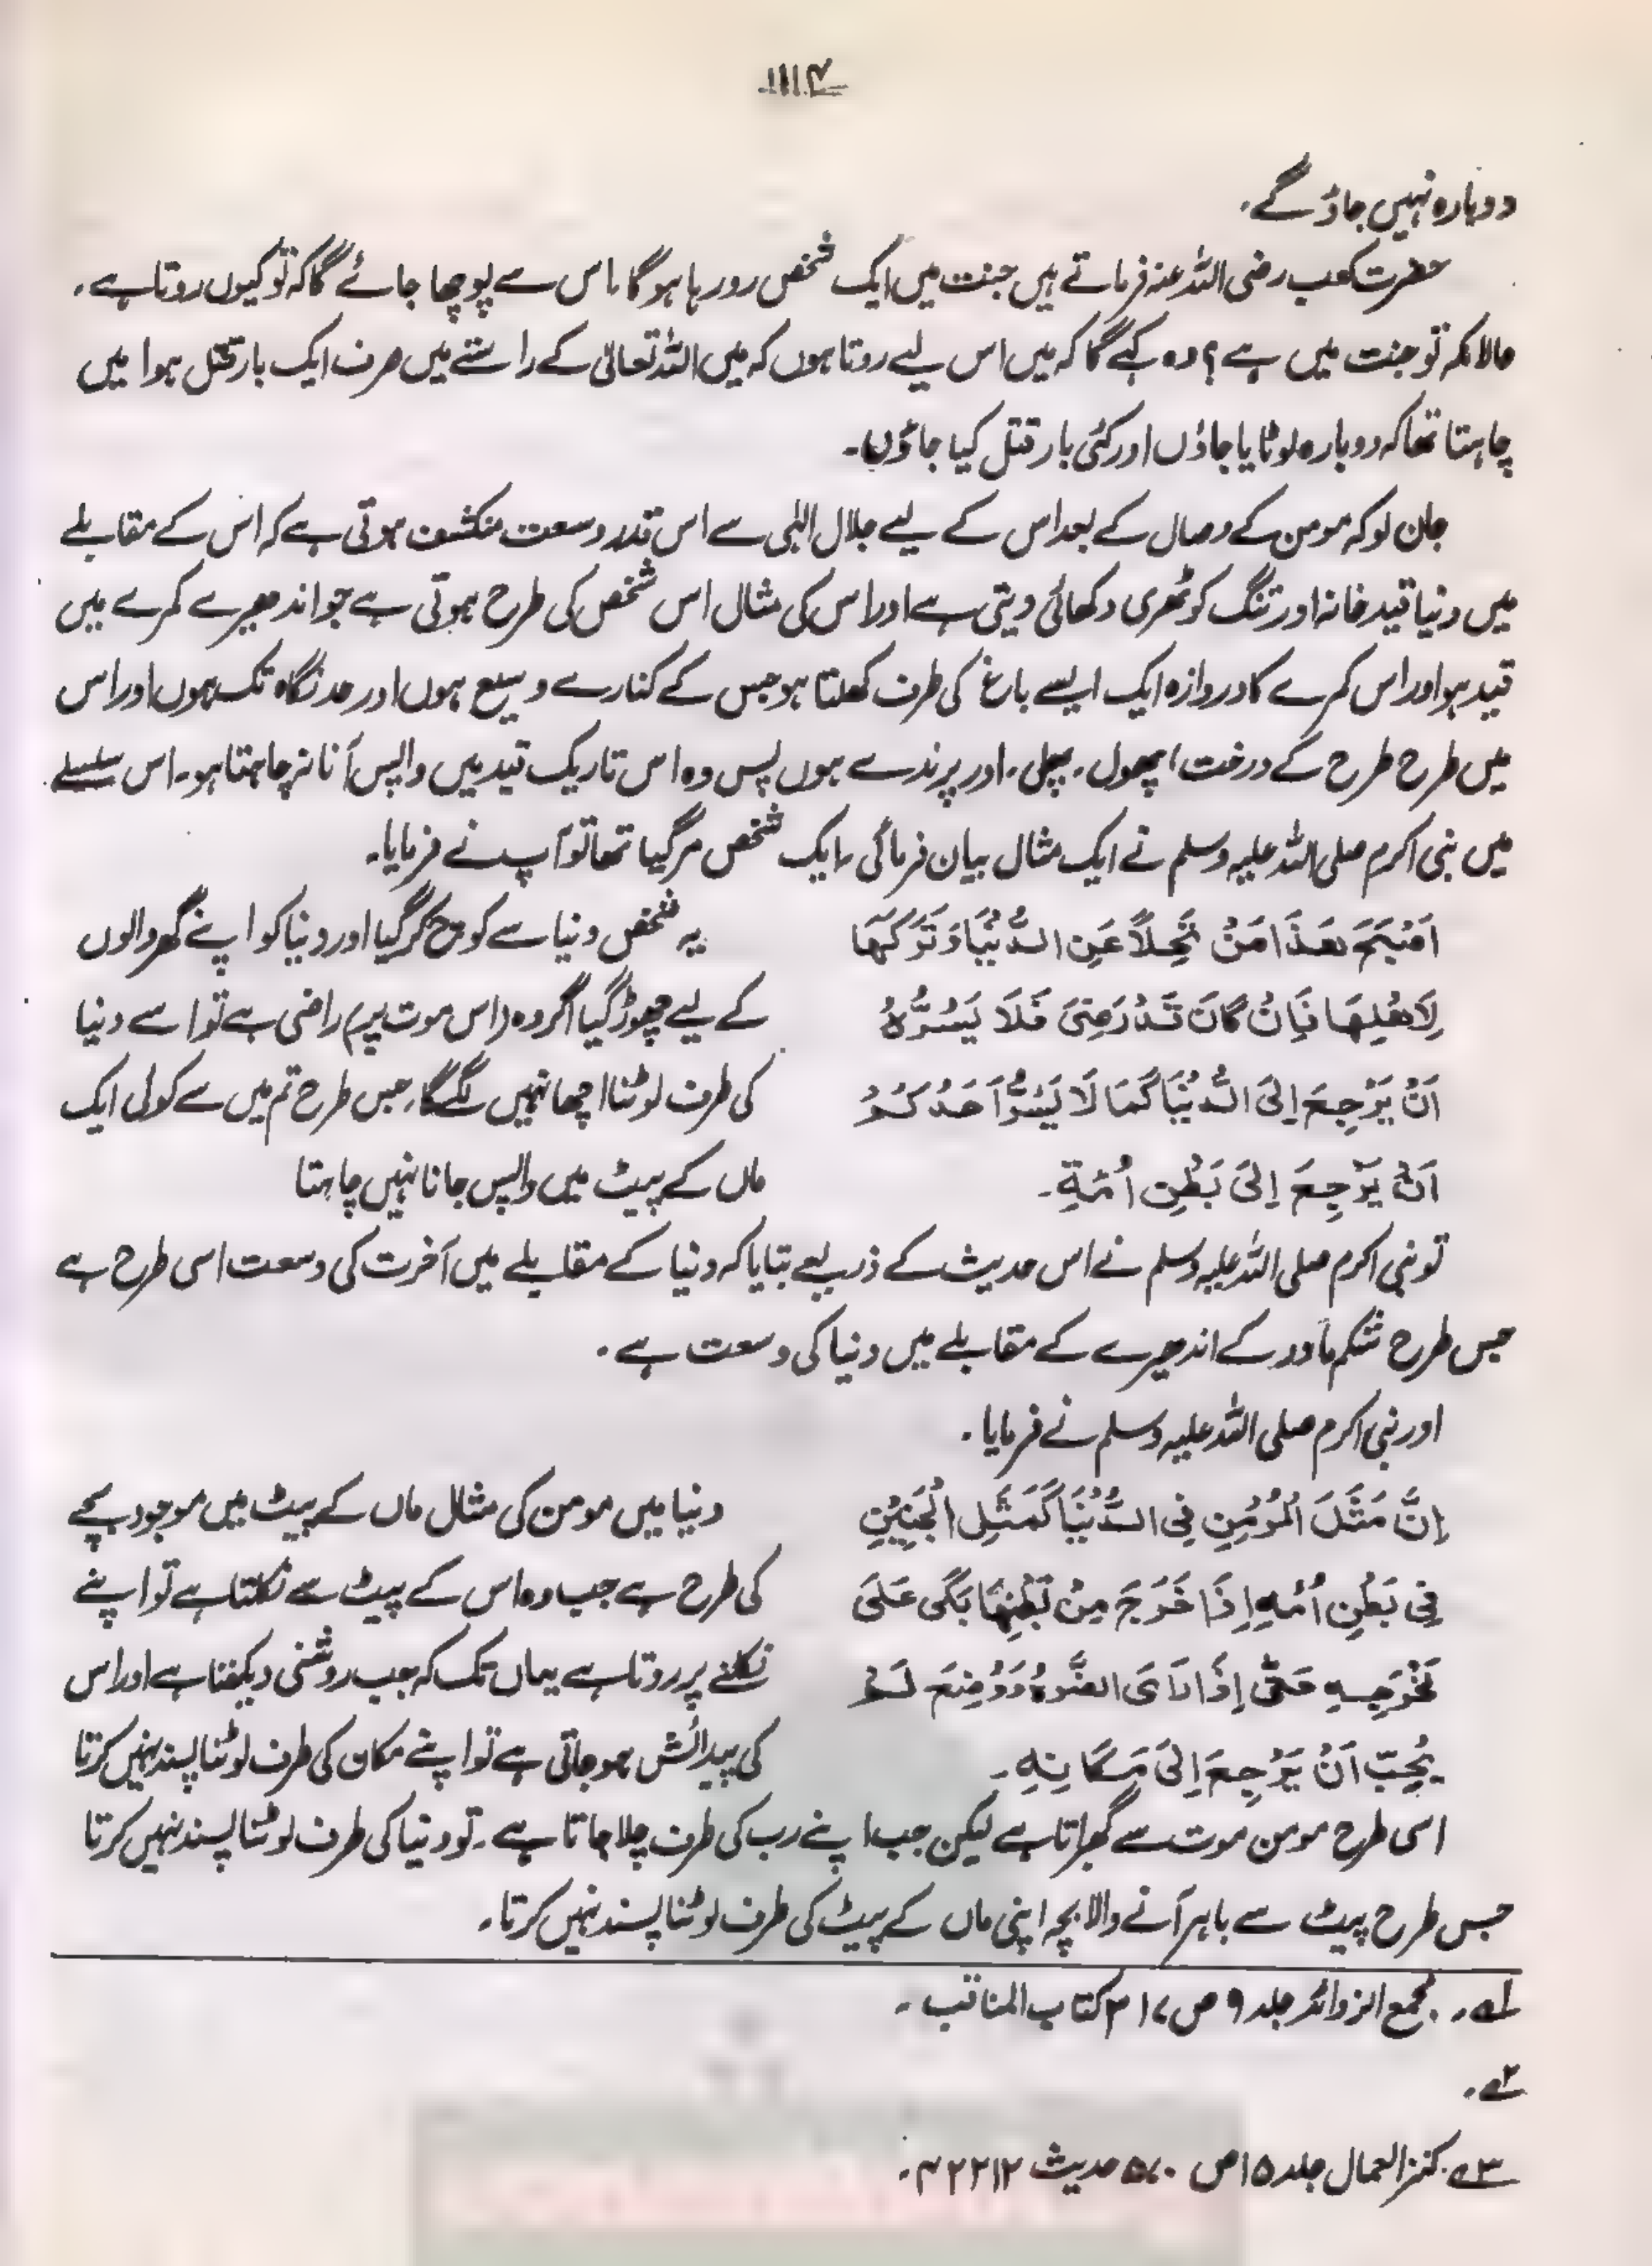 ۱۱۱۴
دوبارہ نہیں جاؤ گے۔
حضرت کعب رضی اللہ عنہ فرماتے ہیں جنت میں ایک شخص رو رہا ہو گا، اس سے پوچھا جائے گا کہ تو کیوں روتا ہے۔
حالانکہ تو جنت میں ہے؟ وہ کہے گا کہ میں اس لیے روتا ہوں کہ میں اللہ تعالٰی کے راستے میں صرف ایک بار قتل ہوا میں
چاہتا تھا کہ دوبارہ لوٹایا جاؤں اور کئی بار قتل کیا جاؤں۔
جان لو کہ مومن کے وصال کے بعد اس کے لیے جلال الٰہی سے اس قدر وسعت منکشف ہوتی ہے کہ اس کے مقابلے
میں دنیا قید خانہ اور تنگ کوٹھری دکھائی دیتی ہے اور اس کی مثال اس شخص کی طرح ہوتی ہے جو اندھیرے کمرے میں
قید ہو اور اس کمرے کا دروازہ ایک ایسے باغ کی طرف کھلتا ہو جس کے کنارے وسیع ہوں اور حد نگاہ تک ہوں اور اس
میں طرح طرح کے درخت، پھول۔ پھل۔ اور پرندے ہوں پس وہ اس تاریک قید میں واپس آنا نہ چاہتا ہو۔ اس سلسلے
میں نبی اکرم صلی اللہ علیہ وسلم نے ایک مثال بیان فرمائی، ایک شخص مر گیا تھا تو آپ نے فرمایا۔
اَصْبَحَ هٰذَا مَنْ تَحِلاًّ عَنِ الدُّنْيَا وَتَرَكَهَا
یہ شخص دنیا سے کوچ کر گیا اور دنیا کو اپنے گھر والوں
لِاَهْلِهَا فَاِنْ كَانَ قَدْ رَضِيَ فَلَا يَسُرُّهُ
کے لیے چھوڑ گیا اگر وہ (اس موت پر) راضی ہے تو اسے دنیا
اَنْ يَرْجِعَ اِلَى الدُّنْيَا كَمَا لَا يَسُرُّ اَحَدَكُمْ
کی طرف لوٹنا اچھا نہیں لگے گا، جس طرح تم میں سے کوئی ایک
اَنْ يَرْجِعَ اِلَى بَطْنِ اُمِّهٖ۔
ماں کے پیٹ میں واپس جانا نہیں چاہتا
تو نبی اکرم صلی اللہ علیہ وسلم نے اس حدیث کے ذریعے بتایا کہ دنیا کے مقابلے میں آخرت کی وسعت اسی طرح ہے
جس طرح شکم مادر کے اندھیرے کے مقابلے میں دنیا کی وسعت ہے۔
اور نبی اکرم صلی اللہ علیہ وسلم نے فرمایا۔
اِنَّ مَثَلَ الْمُؤْمِنِ فِي الدُّنْيَا كَمَثَلِ الْجَنِيْنِ
دنیا میں مومن کی مثال ماں کے پیٹ میں موجود بچے
فِي بَطْنِ اُمِّهٖ اِذَا خَرَجَ مِنْ بَطْنِهَا بَكَى عَلَى
کی طرح ہے جب وہ اس کے پیٹ سے نکلتا ہے تو اپنے
مَخْرَجِهٖ حَتّٰى اِذَا رَاَى الضَّوْءَ وَوُضِعَ لَمْ
نکلنے پر روتا ہے یہاں تک کہ جب روشنی دیکھتا ہے اور اس
يُحِبَّ اَنْ يَرْجِعَ اِلَى مَكَانِهٖ۔
کی پیدائش ہو جاتی ہے تو اپنے مکان کی طرف لوٹنا پسند نہیں کرتا
اسی طرح مومن موت سے گھبراتا ہے لیکن جب اپنے رب کی طرف چلا جاتا ہے۔ تو دنیا کی طرف لوٹنا پسند نہیں کرتا
جس طرح پیٹ سے باہر آنے والا بچہ اپنی ماں کے پیٹ کی طرف لوٹنا پسند نہیں کرتا۔
۱ے۔ مجمع الزوائد جلد ۹ ص ۳۱۷ کتاب المناقب۔
۲ے۔
۳ے۔ کنز العمال جلد ۱۵ ص ۵۷۰ حدیث ۴۲۲۱۲۔